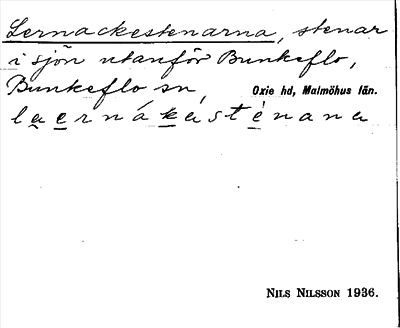 Lernackestenarna, stenar
i sjön utanför Bunkeflo,
Bunkeflo sn, Oxie hd, Malmöhus län.
laernákastènana
NILS NILSSON 1936.